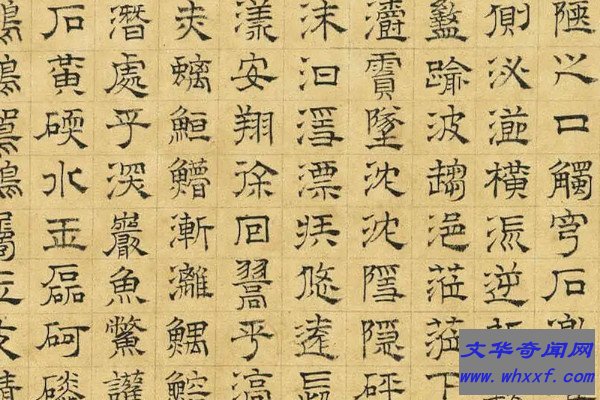 陿之口觸穹石激
側泌橫流逆折
盭踰波趨浥涖涖下
灂霣墜沈沈隱隱砰
沫汩漂疾悠遠長
漾安翔徐回翯乎滈
夫螭漸離鰅
潛處乎深巖魚鱉讙
石黃碝水玉磊砢磷
文华奇闻网
www.whxxf.com